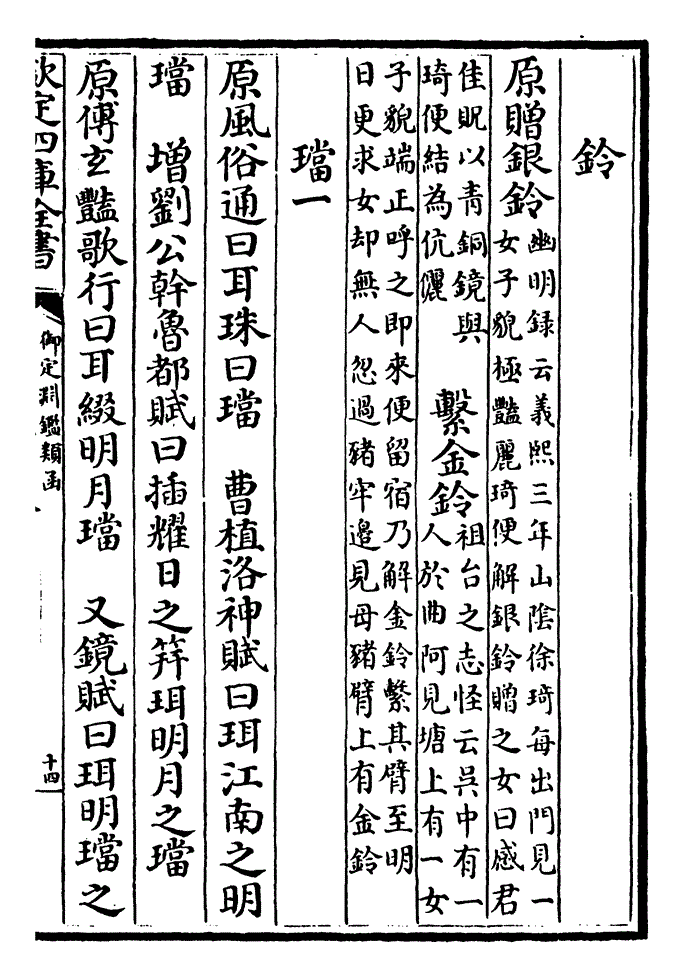 鈴
原贈銀鈴幽明録云義熙三年山陰徐琦每出門見一
女子貌極豔麗琦便解銀鈴贈之女曰感君
佳貺以青銅鏡與
琦便結為伉儷
繫金鈴祖台之志怪云呉中有一
人於曲阿見塘上有一女
子貌端正呼之即來便留宿乃解金鈴繫其臂至明
日更求女却無人忽過豬牢邉見母豬臂上有金鈴
璫一
原風俗通曰耳珠曰璫　曹植洛神賦曰珥江南之明
璫　增劉公幹魯都賦曰插耀日之笄珥明月之璫
原傅玄豔歌行曰耳綴明月璫　又鏡賦曰珥明璫之
欽定四庫全書
御定淵鑑類函
十四